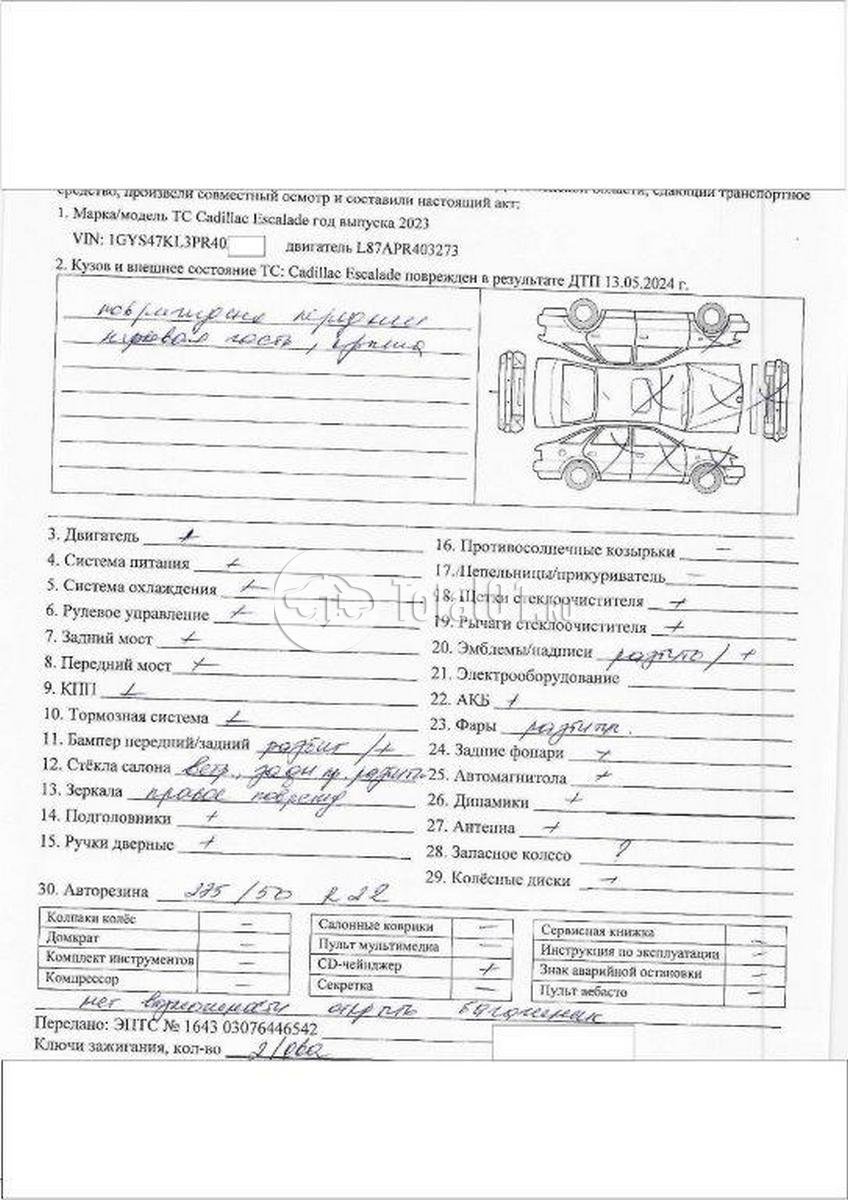 средство, произвели совместный осмотр и составили настоящий акт: области, сдающий транспортное
1. Марка/модель ТС Cadillac Escalade год выпуска 2023
VIN: 1GYS47KL3PR40 двигатель L87APR403273
2. Кузов и внешнее состояние ТС: Cadillac Escalade поврежден в результате ДТП 13.05.2024 г.
часть, крыша
3. Двигатель +
4. Система питания +
5. Система охлаждения +
6. Рулевое управление +
7. Задний мост +
8. Передний мост +
9. КПП +
10. Тормозная система +
11. Бампер передний/задний разбит / +
12. Стёкла салона ветр., задн пр. разбиты
13. Зеркала правое поврежд
14. Подголовники +
15. Ручки дверные +
16. Противосолнечные козырьки –
17. Пепельницы/прикуриватель –
18. Щетки стеклоочистителя +
19. Рычаги стеклоочистителя +
20. Эмблемы/надписи разбиты / +
21. Электрооборудование
22. АКБ +
23. Фары разбит пр.
24. Задние фонари +
25. Автомагнитола +
26. Динамики +
27. Антенна +
28. Запасное колесо ?
29. Колёсные диски +
Total01.ru
30. Авторезина 275/50 R22
Колпаки колёс –
Домкрат –
Комплект инструментов –
Компрессор –
Салонные коврики –
Пульт мультимедиа –
CD-чейнджер +
Секретка –
Сервисная книжка –
Инструкция по эксплуатации –
Знак аварийной остановки –
Пульт вебасто –
нет возможности открыть багажник
Передано: ЭПТС № 1643 03076446542
Ключи зажигания, кол-во 2/два